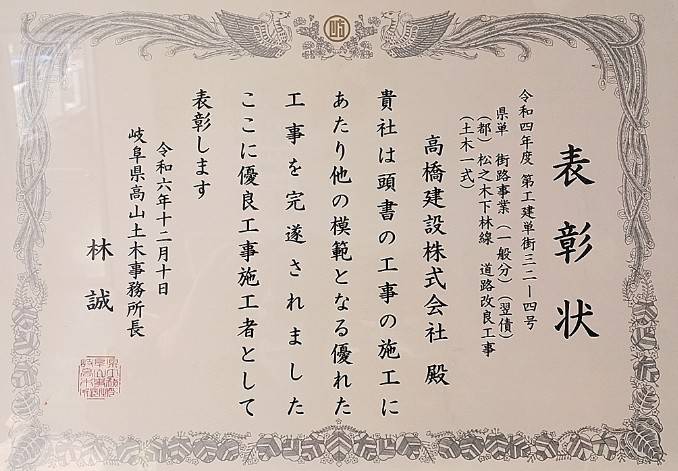 表彰状
令和四年度 第工建単街三二ー四号
県単 街路事業(一般分)(翌債)
(都)松之木下林線 道路改良工事
(土木一式)
高橋建設株式会社 殿
貴社は頭書の工事の施工に
あたり他の模範となる優れた
工事を完遂されました
ここに優良工事施工者として
表彰します
令和六年十二月十日
岐阜県高山土木事務所長
林誠